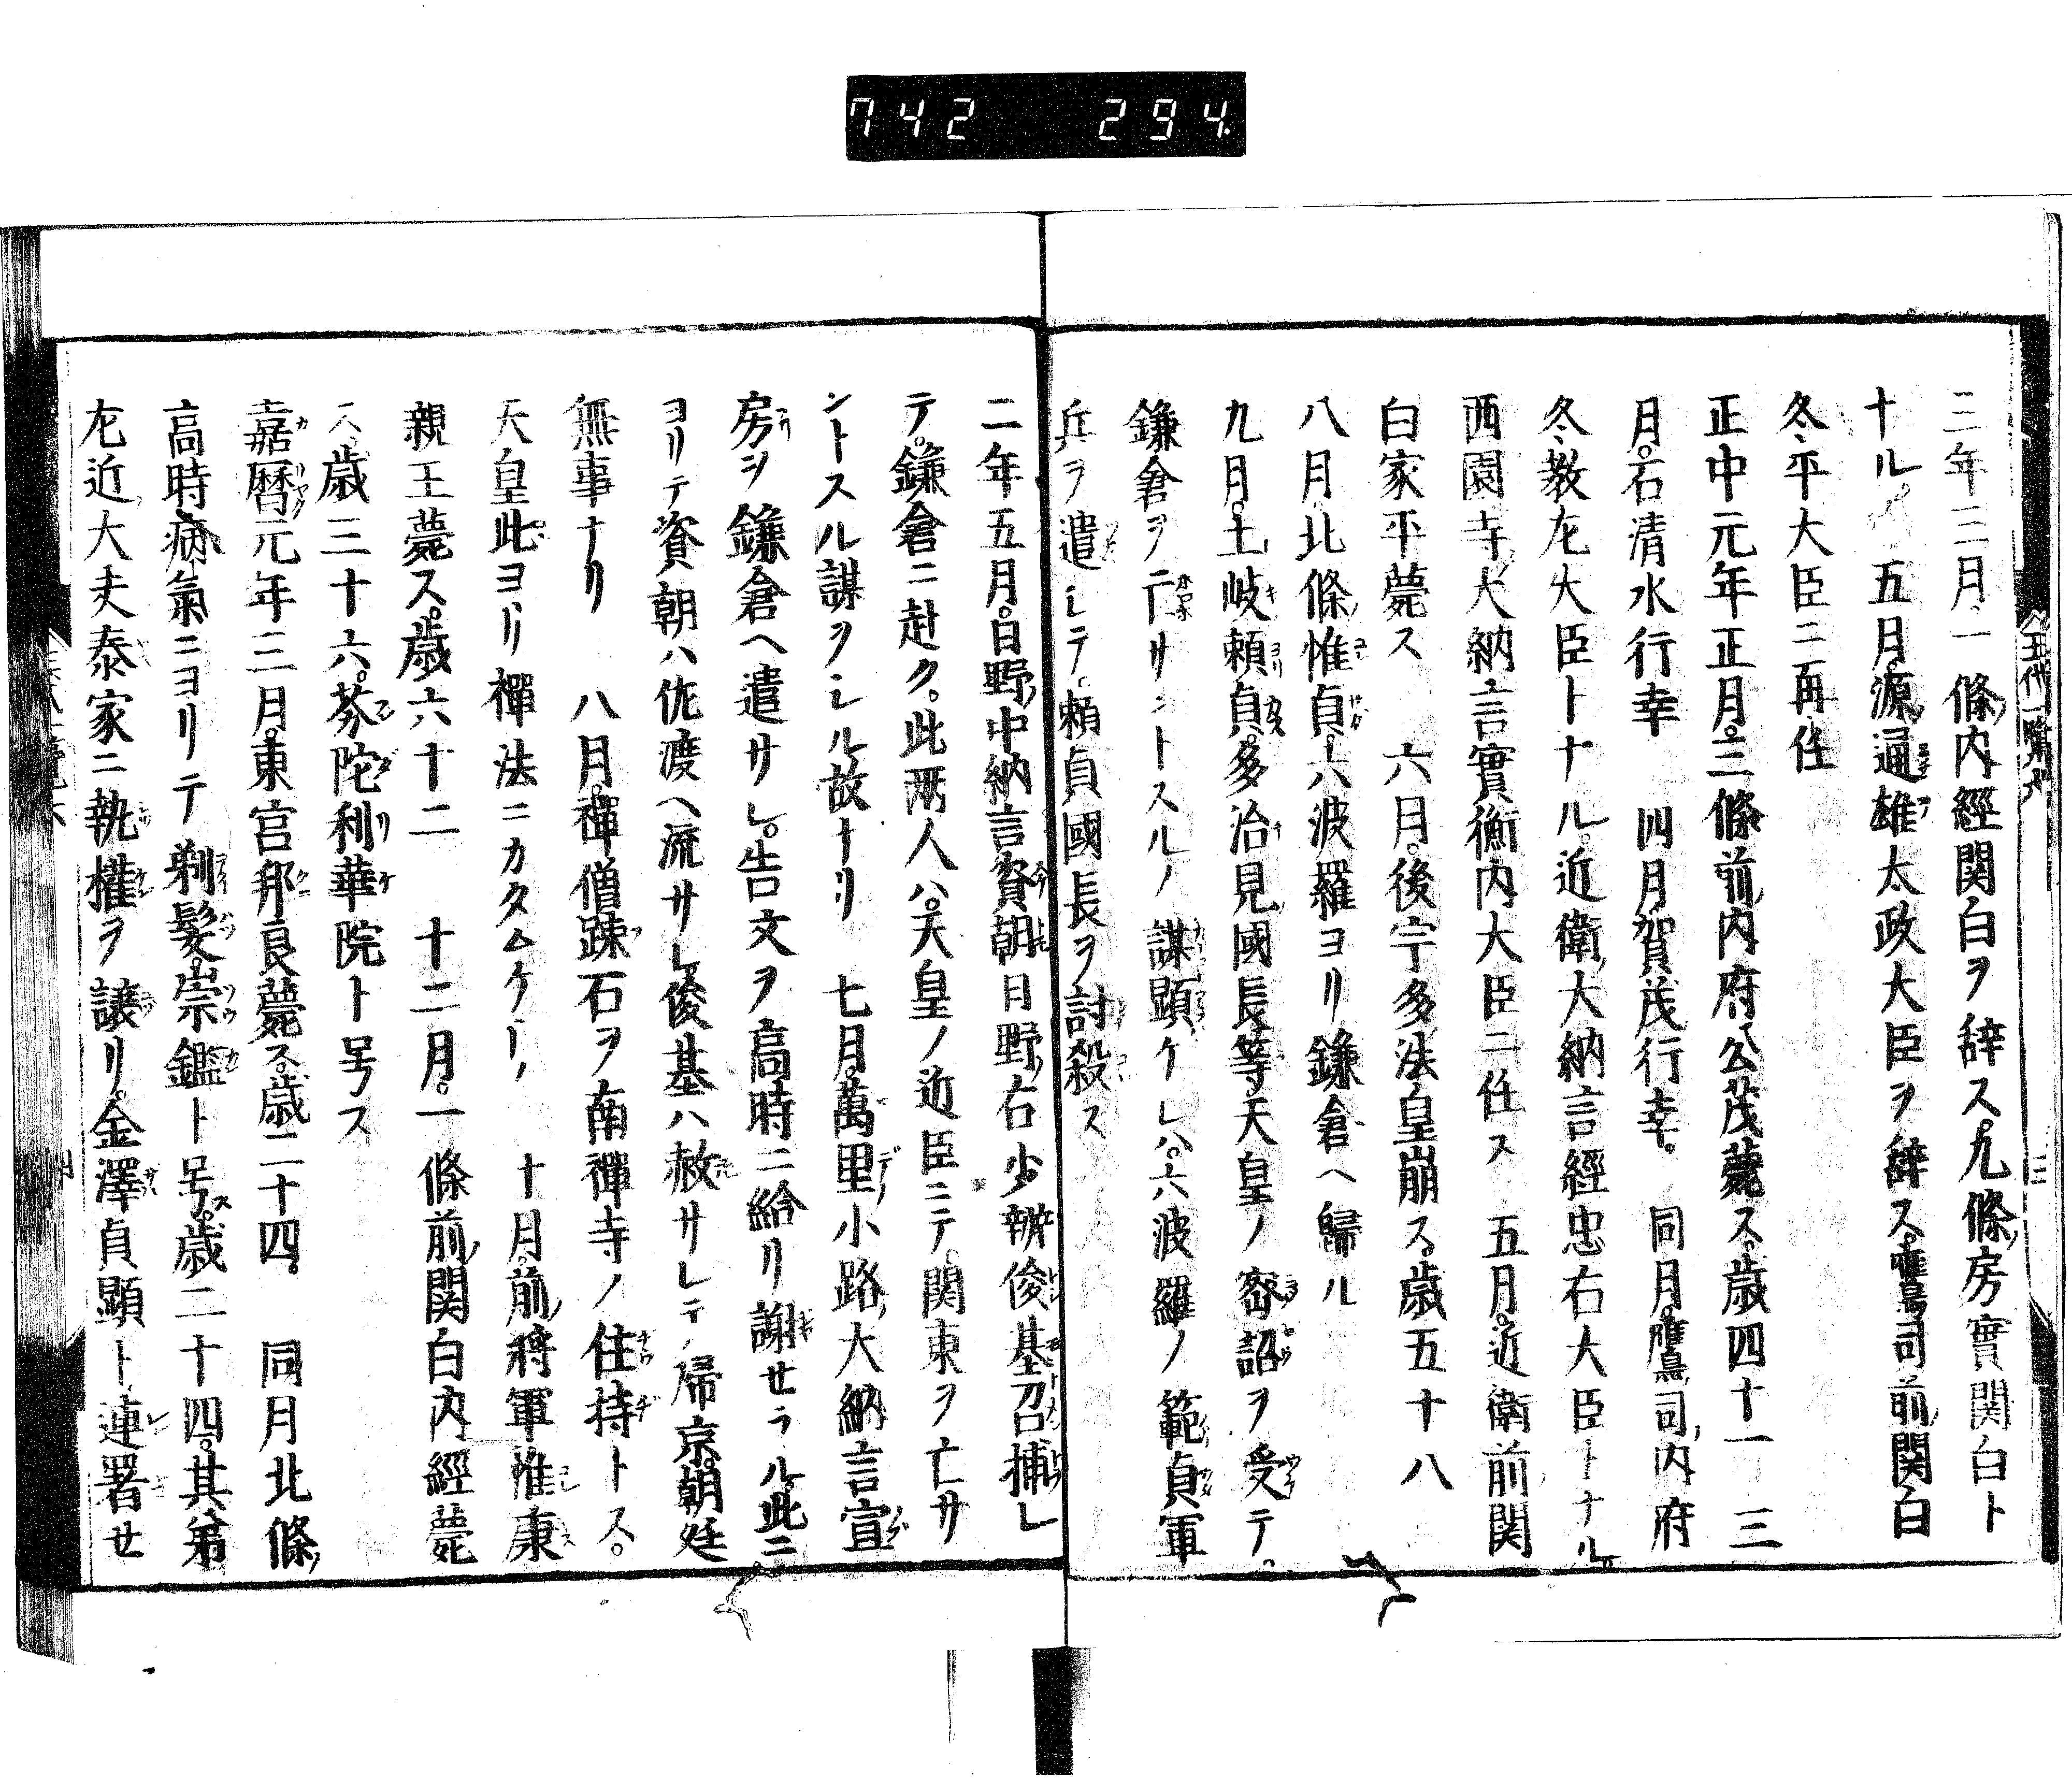 742 294
三年三月、一條内經関白ヲ辞ス。九條房實関白ト
ナル 五月。源通雄太政大臣ヲ辞ス。鷹司前関白
冬平大臣ニ再任
正中元年正月。三條前内府公茂薨ス。歳四十一 三
月。石清水行幸 四月賀茂行幸。 同月。鷹司内府
冬教左大臣トナル。近衛大納言經忠右大臣トナル。
西園寺大納言實衡内大臣ニ任ス 五月。近衛前関
白家平薨ス 六月。後宇多法皇崩ス。歳五十八
八月。北條惟貞。六波羅ヨリ鎌倉ヘ歸ル
九月。土岐頼貞。多治見國長等天皇ノ密詔ヲ受テ。
鎌倉ヲ亡サントスルノ謀顯ケレハ。六波羅ノ範貞軍
兵ヲ遣シテ。頼貞國長ヲ討殺ス
二年五月。日野中納言資朝日野右少辨俊基召捕レ
テ。鎌倉ニ赴ク。此兩人ハ。天皇ノ近臣ニテ。関東ヲ亡サ
ントスル謀ヲシル故ナリ 七月。萬里小路大納言宣
房ヲ鎌倉ヘ遣サレ。告文ヲ高時ニ給リ謝セラル。此ニ
ヨリテ資朝ハ佐渡ヘ流サレ俊基ハ赦サレテ帰京。朝廷
無事ナリ 八月。禪僧踈石ヲ南禪寺ノ住持トス。
天皇此ヨリ禪法ニカタムケリ 十月。前將軍惟康
親王薨ス。歳六十二 十二月。一條前関白内經薨
ス。歳三十六。芬陀利華院ト号ス
嘉暦元年三月。東宮邦良薨ス。歳二十四。 同月北條
高時病氣ニヨリテ剃髮。崇鑑ト号ス。歳二十四。其弟
左近大夫泰家ニ執權ヲ譲リ。金澤貞顯ト連署セ